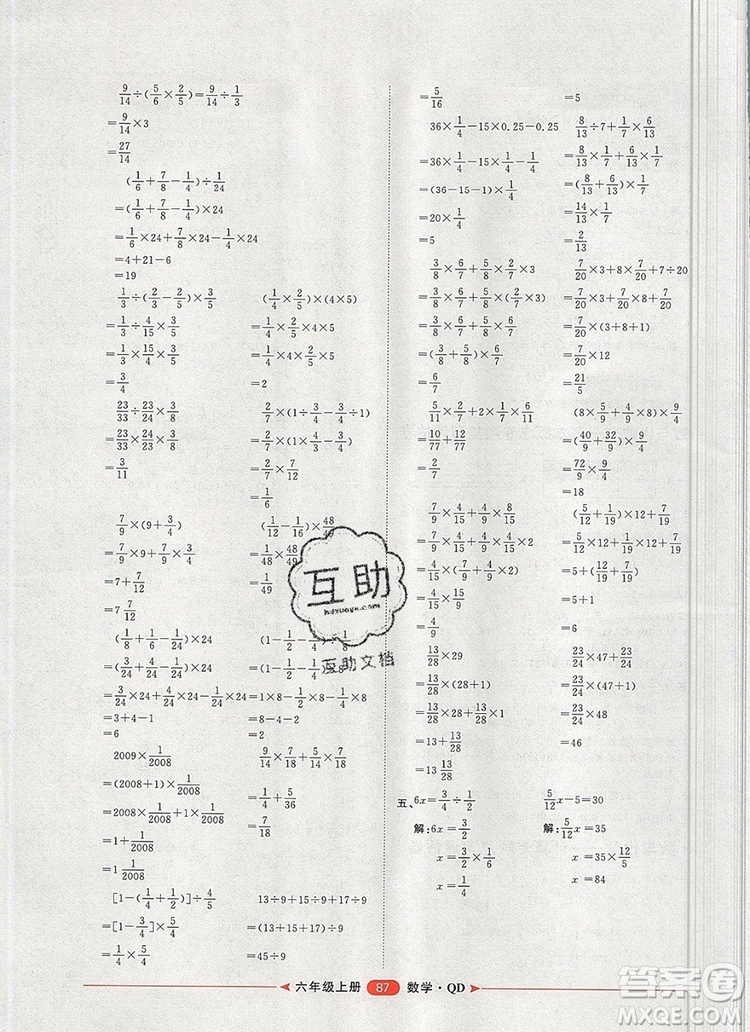 9/14÷(5/6×2/5)=9/14÷1/3
=9/14×3
=27/14
(1/6+7/8-1/4)÷1/24
=(1/6+7/8-1/4)×24
=1/6×24+7/8×24-1/4×24
=4+21-6
=19
1/3÷(2/3-2/5)×3/5
=1/3÷4/15×3/5
=1/3×15/4×3/5
=3/4
(1/4×2/5)×(4×5)
=1/4×4×2/5×5
=2
23/33÷23/24×3/8
=23/33×24/23×3/8
=3/11
2/7×(1÷3/4-3/4÷1)
=2/7×7/12
=1/6
7/9×(9+3/4)
=7/9×9+7/9×3/4
=7+7/12
=7 7/12
=1/48×48/49
=1/49
(1/8+4/24-1/24)×24
=(3/24+4/24-1/24)×24
=3/24×24+4/24×24-1/24×24
=3+4-1
=6
=1×8-1/2×8-1/4×8
=8-4-2
=2
2009×1/2008
=(2008+1)×1/2008
=2008×1/2008+1×1/2008
=1+1/2008
=1 1/2008
9/14×7/18+5/14÷4/7
=1/4+5/8
=7/8
[1-(1/4+1/2)]÷4/5
=[1-3/4]×5/4
=1/4×5/4
13÷9+15÷9+17÷9
=(13+15+17)÷9
=45÷9
=5/16
36×1/4-15×0.25-0.25
=36×1/4-15×1/4-1/4
=(36-15-1)×1/4
=20×1/4
=5
3/8×6/7+2/5×2/7×3
=3/8×6/7+2/5×(2/7×3)
=3/8×6/7+2/5×6/7
=(3/8+5/8)×6/7
=6/7
5/11×2/7+2×1/7×6/11
=10/77+12/77
=2/7
7/9×4/15+4/9×8/15
=4/15×(7/9+4/9×2)
=4/9
13/28×29
=13/28×(28+1)
=13/28×28+13/28×1
=13+13/28
=13 13/28
=5
8/13÷7+1/7×6/13
=8/13×1/7+6/13×1/7
=(8/13+6/13)×1/7
=14/13×1/7
=2/13
7/20×3+8×7/20+7÷20
=7/20×3+7/20×8+7/20
=7/20×(3+8+1)
=7/20×12
=21/5
(8×5/9+4/9×8)×9/4
=(40/9+32/9)×9/4
=72/9×9/4
=18
=5+1
=6
23/24×47+23/24
=23/24×(47+1)
=23/24×48
=46
五、6x=3/4÷1/2
解:6x=3/2
x=3/2×1/6
x=1/4
5/12x-5=30
解:5/12x=35
x=35×12/5
x=84
互助
互助文档
六年级上册 87 数学·QD
答案圈
MXQE.COM